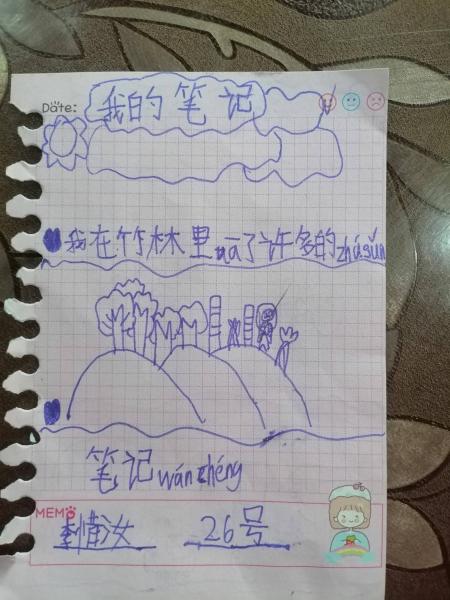 Date:
我的笔记
我在竹林里wā了许多的zhúsǔn
笔记wánchéng
MEMO
26号